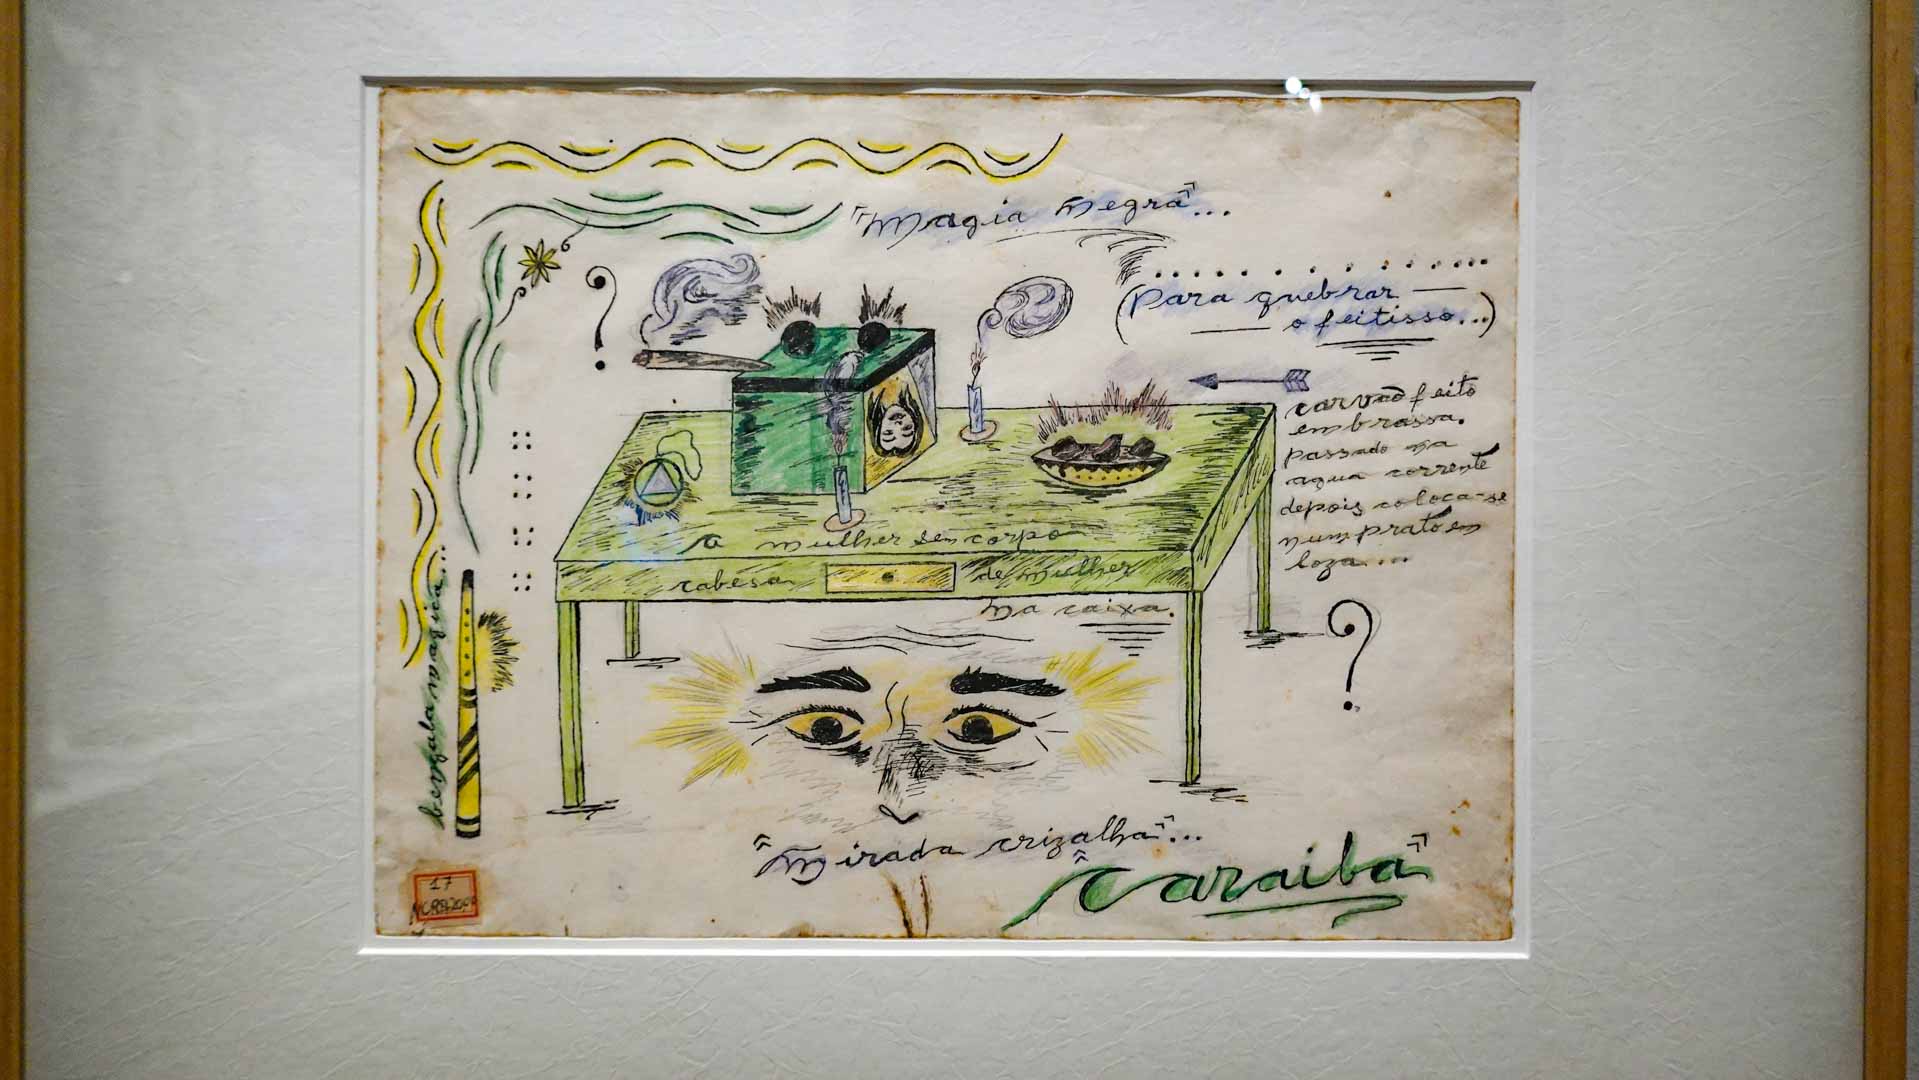 "Magia Negra"...
(Para quebrar
o feitisso...)
carvão feito
em brassa.
passado na
agua corrente
depois coloca-se
num prato em
loza....
a mulher sem corpo
cabesa de mulher
na caixa.
bengala magica...
"Mirada crizalha"...
"Caraiba"
17